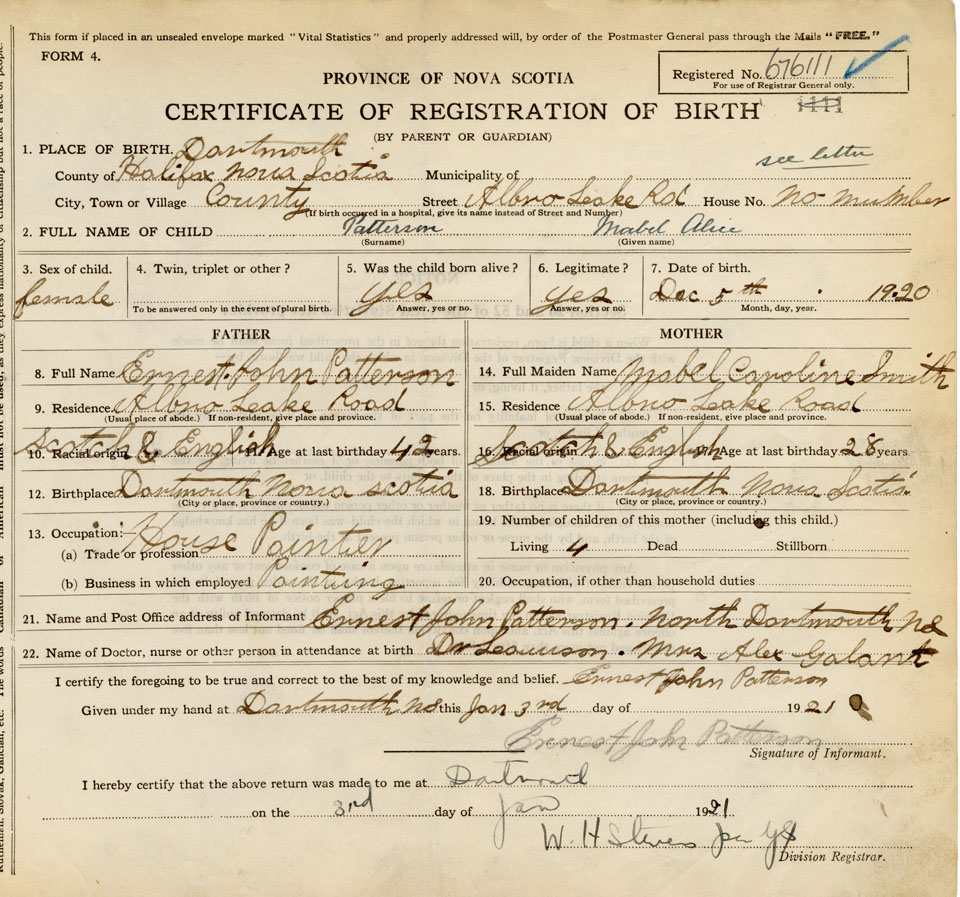 This form if placed in an unsealed envelope marked "Vital Statistics" and properly addressed will, by order of the Postmaster General pass through the Mails "FREE."
FORM 4.
PROVINCE OF NOVA SCOTIA
Registered No. 676111
For use of Registrar General only.
CERTIFICATE OF REGISTRATION OF BIRTH
(BY PARENT OR GUARDIAN)
1. PLACE OF BIRTH. Dartmouth
see letter
County of Halifax Nova Scotia Municipality of
City, Town or Village County Street Albro Leake Rd House No. no number
(If birth occurred in a hospital, give its name instead of Street and Number)
2. FULL NAME OF CHILD Patterson Mabel Alice
(Surname) (Given name)
3. Sex of child. 4. Twin, triplet or other? 5. Was the child born alive? 6. Legitimate? 7. Date of birth.
female yes yes Dec 5th 1920
To be answered only in the event of plural birth. Answer, yes or no. Answer, yes or no. Month, day, year.
FATHER MOTHER
8. Full Name Ernest John Patterson 14. Full Maiden Name Mabel Caroline Smith
9. Residence. Albro Leake Road 15. Residence Albro Leake Road
(Usual place of abode.) If non-resident, give place and province. (Usual place of abode.) If non-resident, give place and province.
10. Racial origin Scotch & English 11. Age at last birthday 42 years. 16. Racial origin Scotch & English Age at last birthday 28 years
12. Birthplace Dartmouth Nova Scotia 18. Birthplace Dartmouth Nova Scotia
(City or place, province or country.) (City or place, province or country.)
13. Occupation: House Paintier 19. Number of children of this mother (including this child.)
(a) Trade or profession Living 4 Dead Stillborn
(b) Business in which employed Painting 20. Occupation, if other than household duties
21. Name and Post Office address of Informant Ernest John Patterson. North Dartmouth NS
22. Name of Doctor, nurse or other person in attendance at birth Dr . Mrs Alex Galant
I certify the foregoing to be true and correct to the best of my knowledge and belief. Ernest John Patterson
Given under my hand at Dartmouth NS this Jan 3rd day of 1921
Ernest John Patterson
Signature of Informant.
I hereby certify that the above return was made to me at Dartmouth
on the 3rd day of Jan 1921
W. H Stevens
Division Registrar.